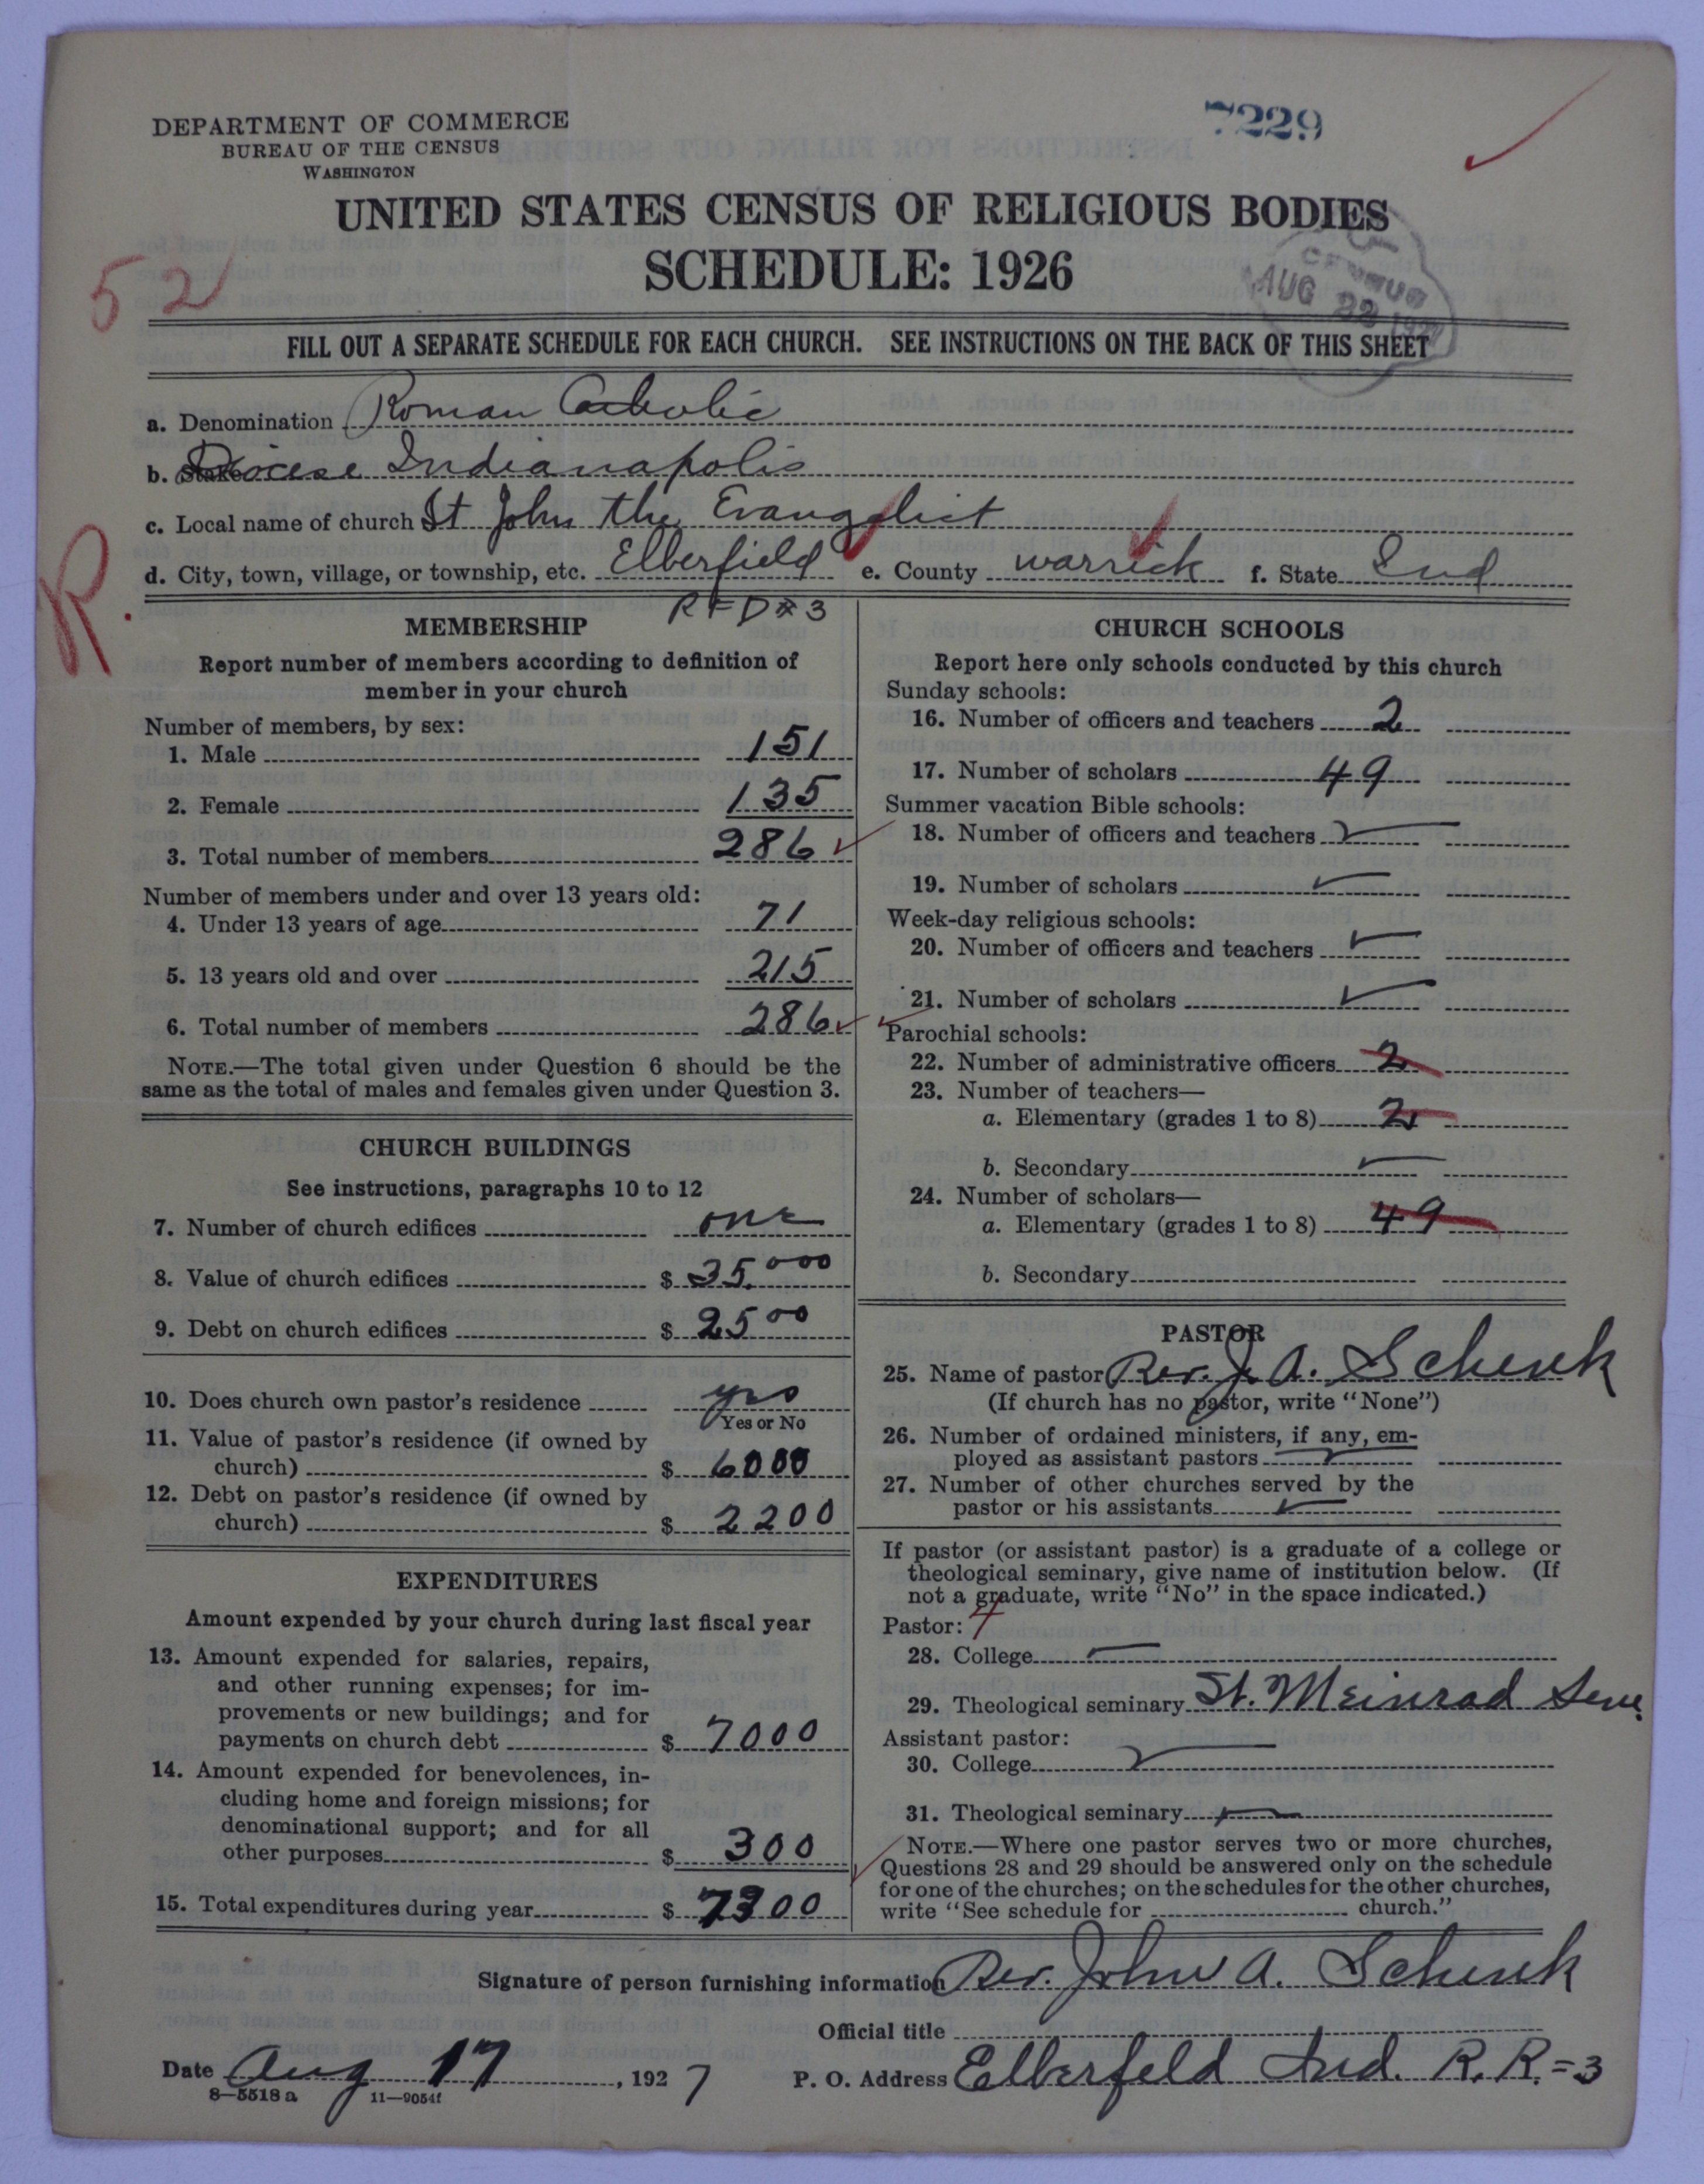 7229
DEPARTMENT OF COMMERCE
BUREAU OF THE CENSUS
WASHINGTON
UNITED STATES CENSUS OF RELIGIOUS BODIES
SCHEDULE: 1926
CENSUS
AUG 22 1927
52
FILL OUT A SEPARATE SCHEDULE FOR EACH CHURCH. SEE INSTRUCTIONS ON THE BACK OF THIS SHEET
a. Denomination Roman Catholic
b. Diocese Indianapolis
c. Local name of church St John the Evangelist
d. City, town, village, or township, etc. Elberfield e. County warrick f. State Ind
R.
RFD #3
MEMBERSHIP
Report number of members according to definition of
member in your church
Number of members, by sex:
1. Male 151
2. Female 135
3. Total number of members 286
Number of members under and over 13 years old:
4. Under 13 years of age 71
5. 13 years old and over 215
6. Total number of members 286
NOTE.—The total given under Question 6 should be the
same as the total of males and females given under Question 3.
CHURCH BUILDINGS
See instructions, paragraphs 10 to 12
7. Number of church edifices one
8. Value of church edifices $ 35.000
9. Debt on church edifices $ 2500
10. Does church own pastor's residence yes
Yes or No
11. Value of pastor's residence (if owned by
church) $ 6000
12. Debt on pastor's residence (if owned by
church) $ 2200
EXPENDITURES
Amount expended by your church during last fiscal year
13. Amount expended for salaries, repairs,
and other running expenses; for im-
provements or new buildings; and for
payments on church debt $ 7000
14. Amount expended for benevolences, in-
cluding home and foreign missions; for
denominational support; and for all
other purposes $ 300
15. Total expenditures during year $ 7300
CHURCH SCHOOLS
Report here only schools conducted by this church
Sunday schools:
16. Number of officers and teachers 2
17. Number of scholars 49
Summer vacation Bible schools:
18. Number of officers and teachers
19. Number of scholars
Week-day religious schools:
20. Number of officers and teachers
21. Number of scholars
Parochial schools:
22. Number of administrative officers 2
23. Number of teachers—
a. Elementary (grades 1 to 8) 2
b. Secondary
24. Number of scholars—
a. Elementary (grades 1 to 8) 49
b. Secondary
PASTOR
25. Name of pastor Rev. J. A. Schenk
(If church has no pastor, write "None")
26. Number of ordained ministers, if any, em-
ployed as assistant pastors
27. Number of other churches served by the
pastor or his assistants
If pastor (or assistant pastor) is a graduate of a college or
theological seminary, give name of institution below. (If
not a graduate, write "No" in the space indicated.)
Pastor: 4
28. College
29. Theological seminary St. Meinrad Sem.
Assistant pastor:
30. College
31. Theological seminary
NOTE.—Where one pastor serves two or more churches,
Questions 28 and 29 should be answered only on the schedule
for one of the churches; on the schedules for the other churches,
write "See schedule for church."
Signature of person furnishing information Rev. John A. Schenk
Official title
Date Aug 17, 1927 P. O. Address Elberfeld Ind. R. R. = 3
8—5518 a 11—9054f